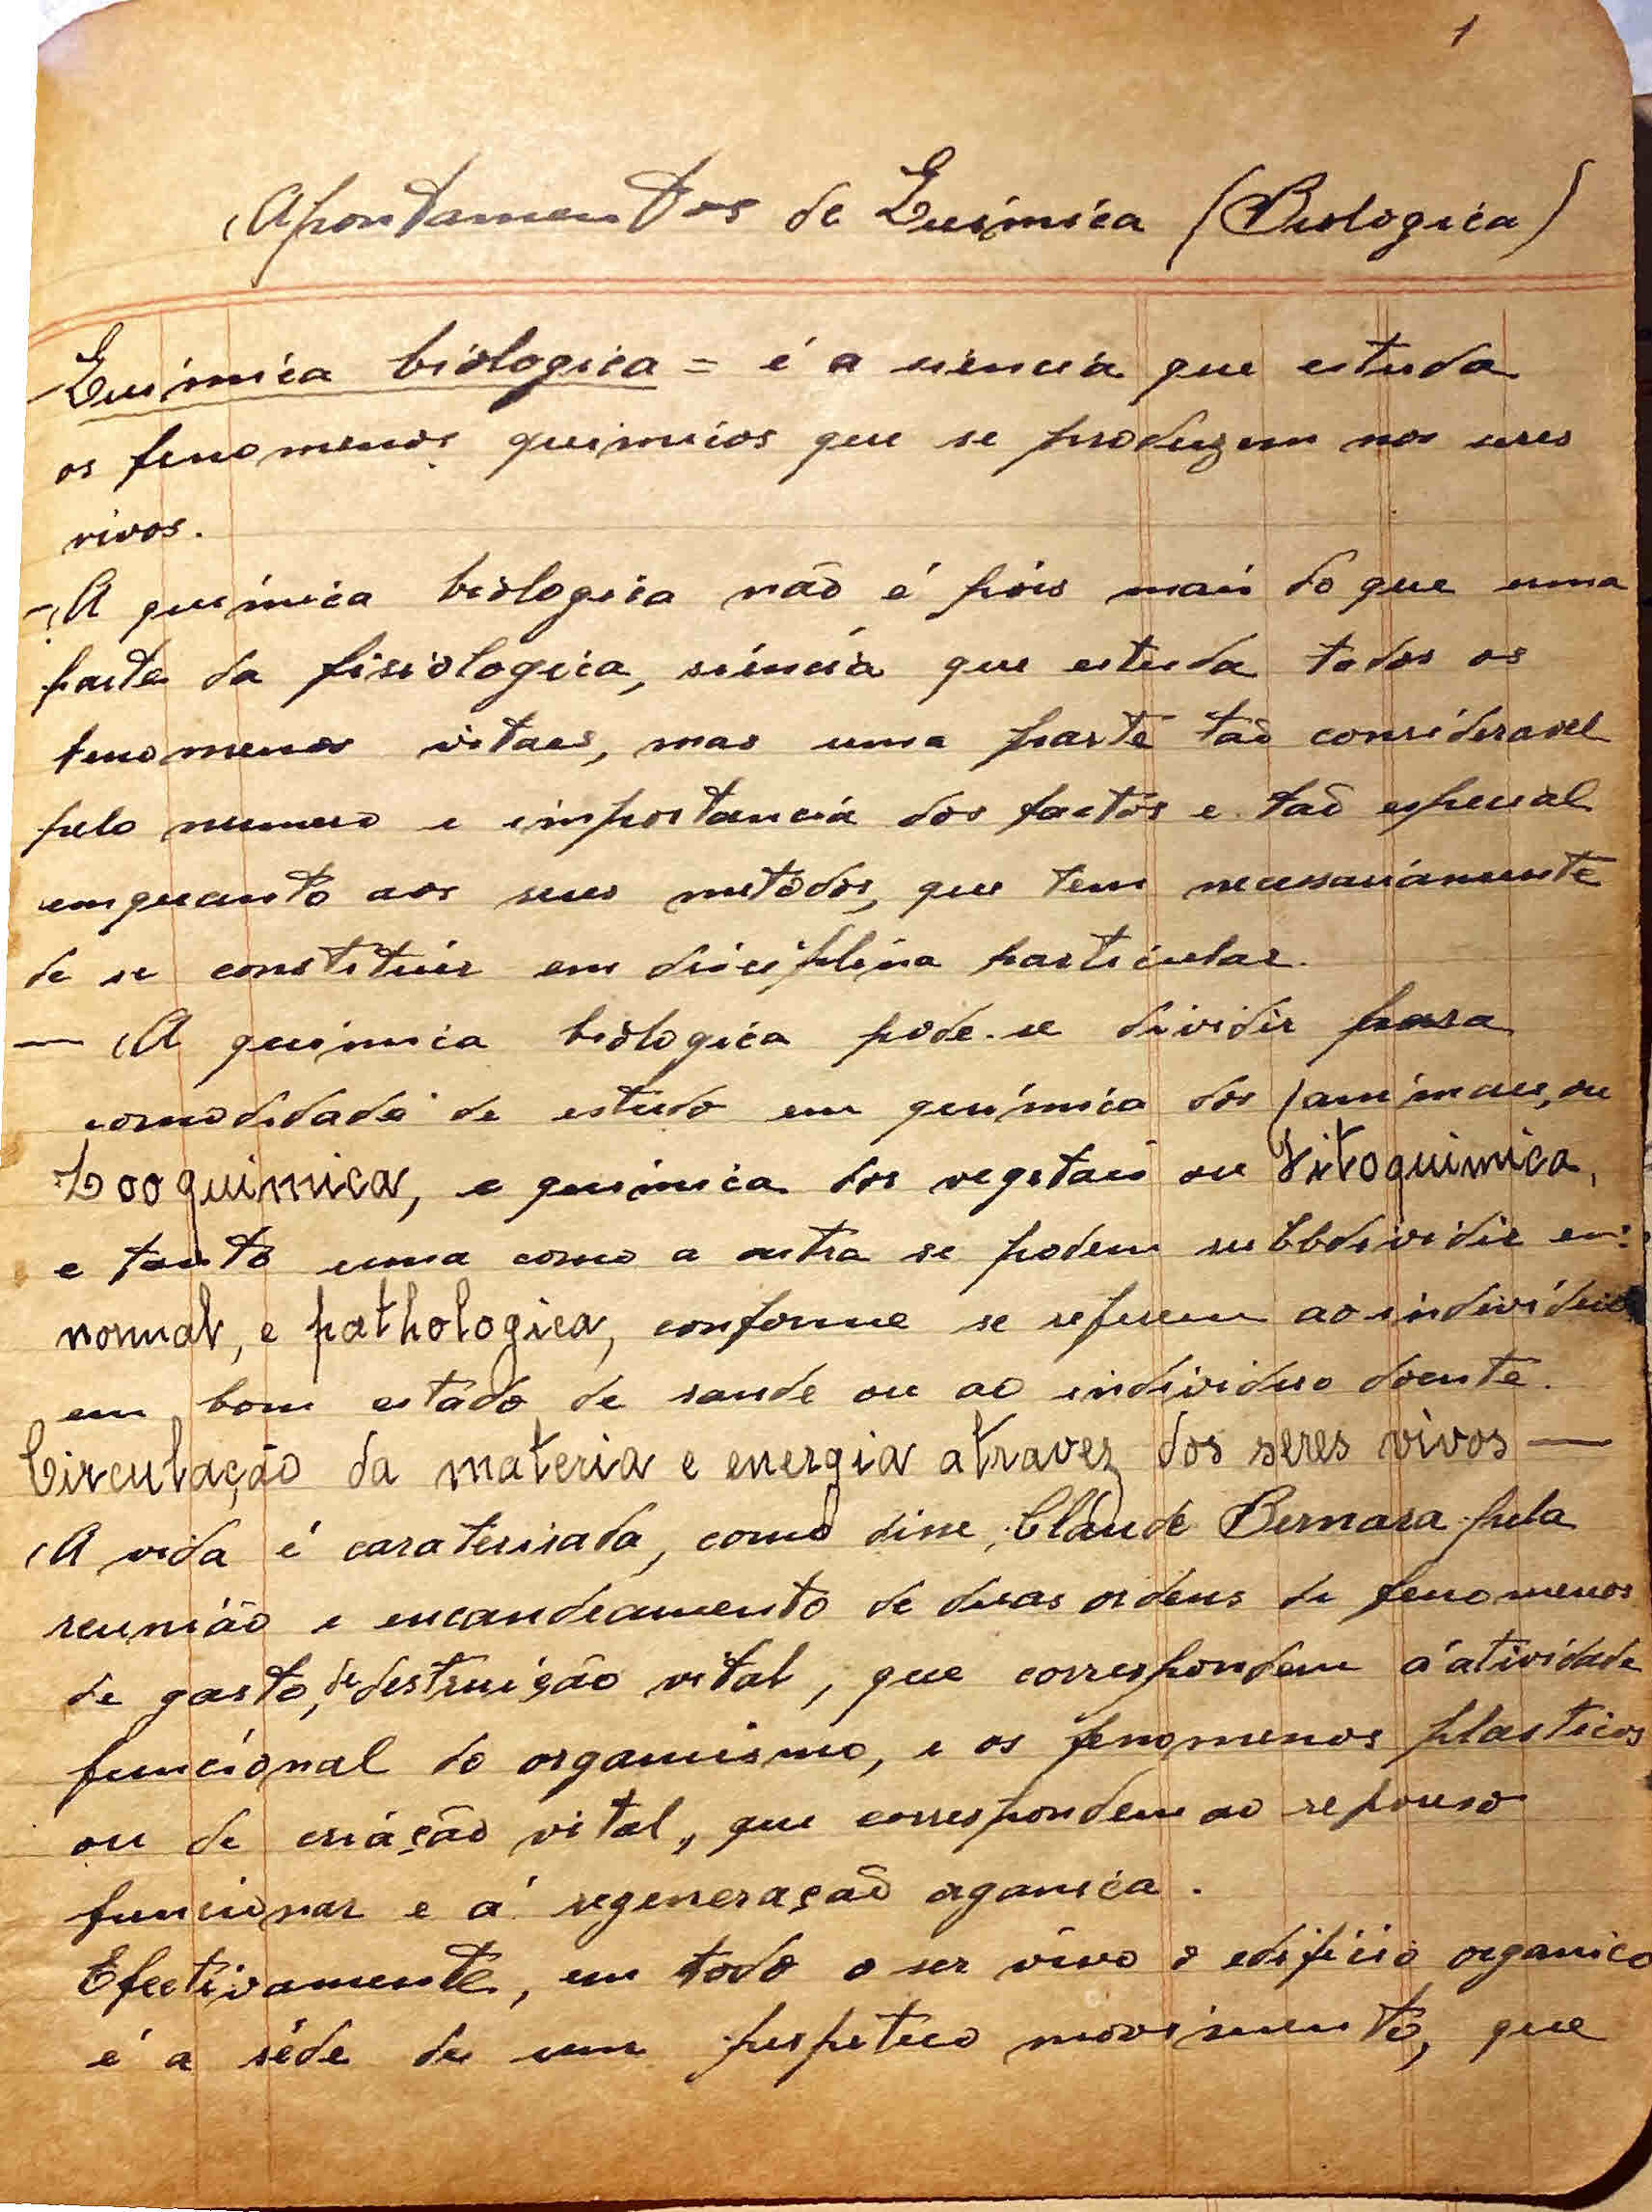 1
Apontamentos de Quimica (Biologica)
Quimica biologica = é a siencia que estuda
os fenomenos quimicos que se produzem nos seres
vivos.
- A química biologica não é pois mais do que uma
parte da fisiologica, siência que estuda todos os
fenomenos vitaes, mas uma parte tão consideravel
pelo numero e importancia dos factos e tão especial
emquanto aos seus metodos, que tem necessariamente
de se constituir em disciplina particular.
— A quimica biologica pode-se dividir para
comodidade de estudo em química dos animaes, ou
Zooquimica, e quimica dos vegetais ou Fitoquimica,
e tanto uma como a outra se podem subbdividir em:
normal, e pathologica, conforme se referem ao individuo
em bom estado de saude ou ao individuo doente.
Circulação da materia e energia atravez dos seres vivos —
A vida é caraterisada, como disse, Claude Bernara pela
reunião e encandeamento de duas ordens de fenomenos
de gasto, de destruição vital, que correspondem á atividade
funcional do organismo, e os fenomenos plasticos
ou de criação vital, que correspondem ao repouso
funcionar e á regeneração organica.
Efectivamente, em todo o ser vivo o edificio organico
é a séde de um perpetuo movimento, que